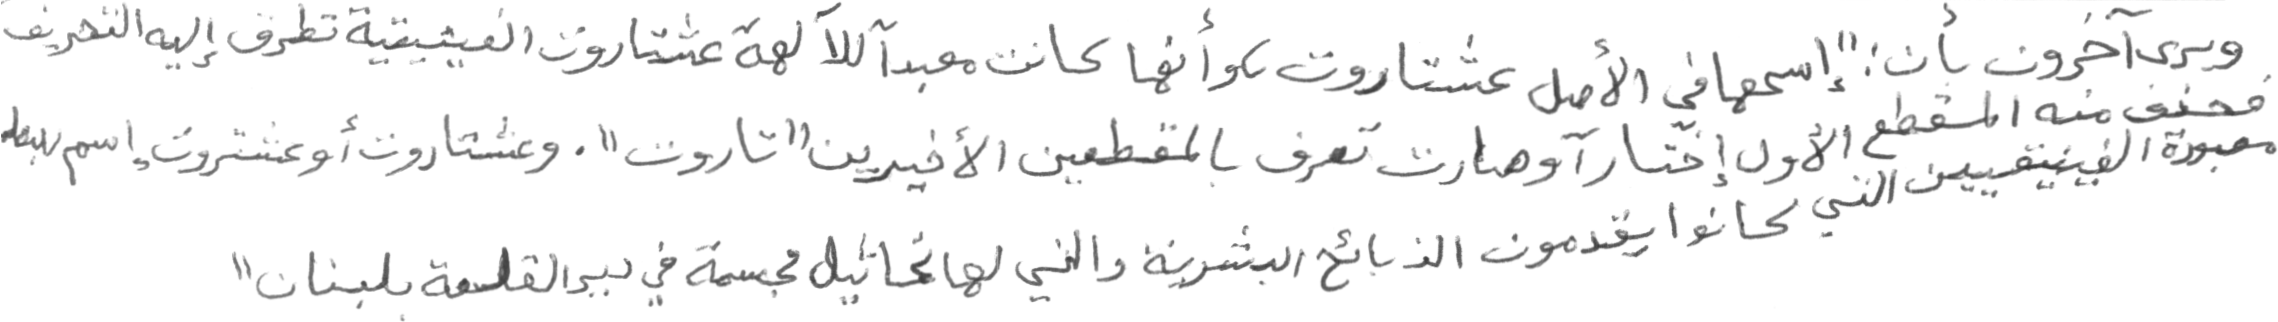 ويرى آخرون بأن: "إسمها في الأصل عشتاروت كوأنها كانت معبدآ للآلهة عشتاروت الفينيقية تطرق إليه التحريف
فحذف منه المقطع الأول إختسارآ وصارت تعرف بالمقطعين الأخيرين "تاروت". وعشتاروت أو عشتروت إسم
معبودة الفينيقيين التي كانوا يقدمون الذبائح البشرية والتي لها تماثيل مجسمة في دير القلعة بلبنان"